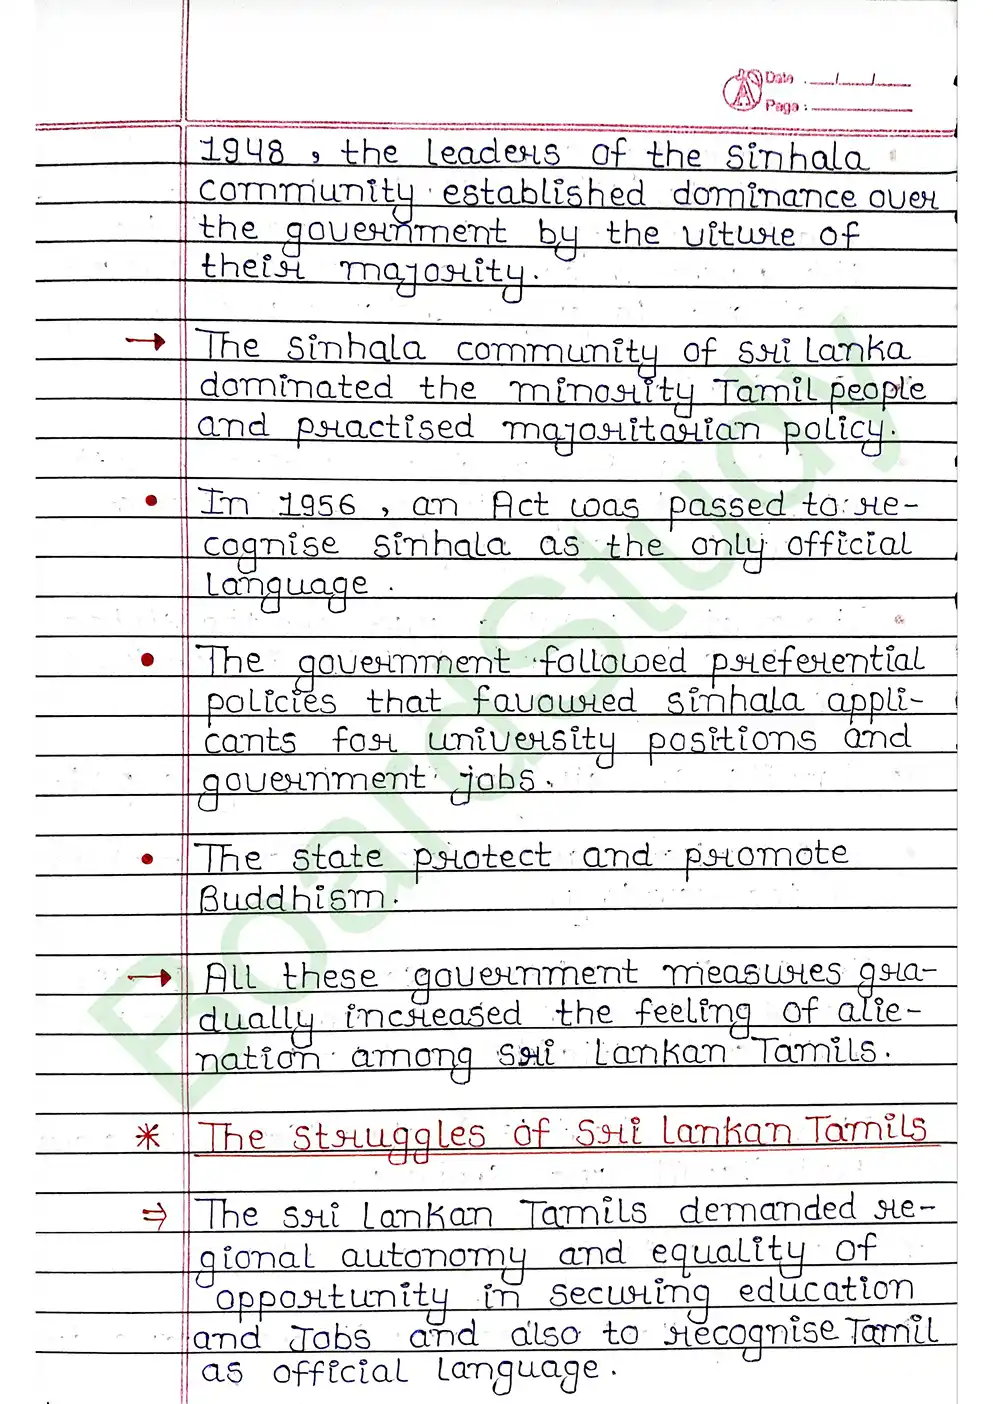 Date : __/__/__
Page :
1948 , the leaders of the Sinhala
community established dominance over
the government by the viture of
their majority.
→ The Sinhala community of Sri Lanka
dominated the minority Tamil people
and practised majoritarian policy.
• In 1956 , an Act was passed to re-
cognise Sinhala as the only official
language .
• The government followed preferential
policies that favoured Sinhala appli-
cants for university positions and
government jobs.
• The state protect and promote
Buddhism.
→ All these government measures gra-
dually increased the feeling of alie-
nation among Sri Lankan Tamils.
* The struggles of Sri Lankan Tamils
⇒ The Sri Lankan Tamils demanded re-
gional autonomy and equality of
opportunity in securing education
and Jobs and also to recognise Tamil
as official language .
BoardStudy